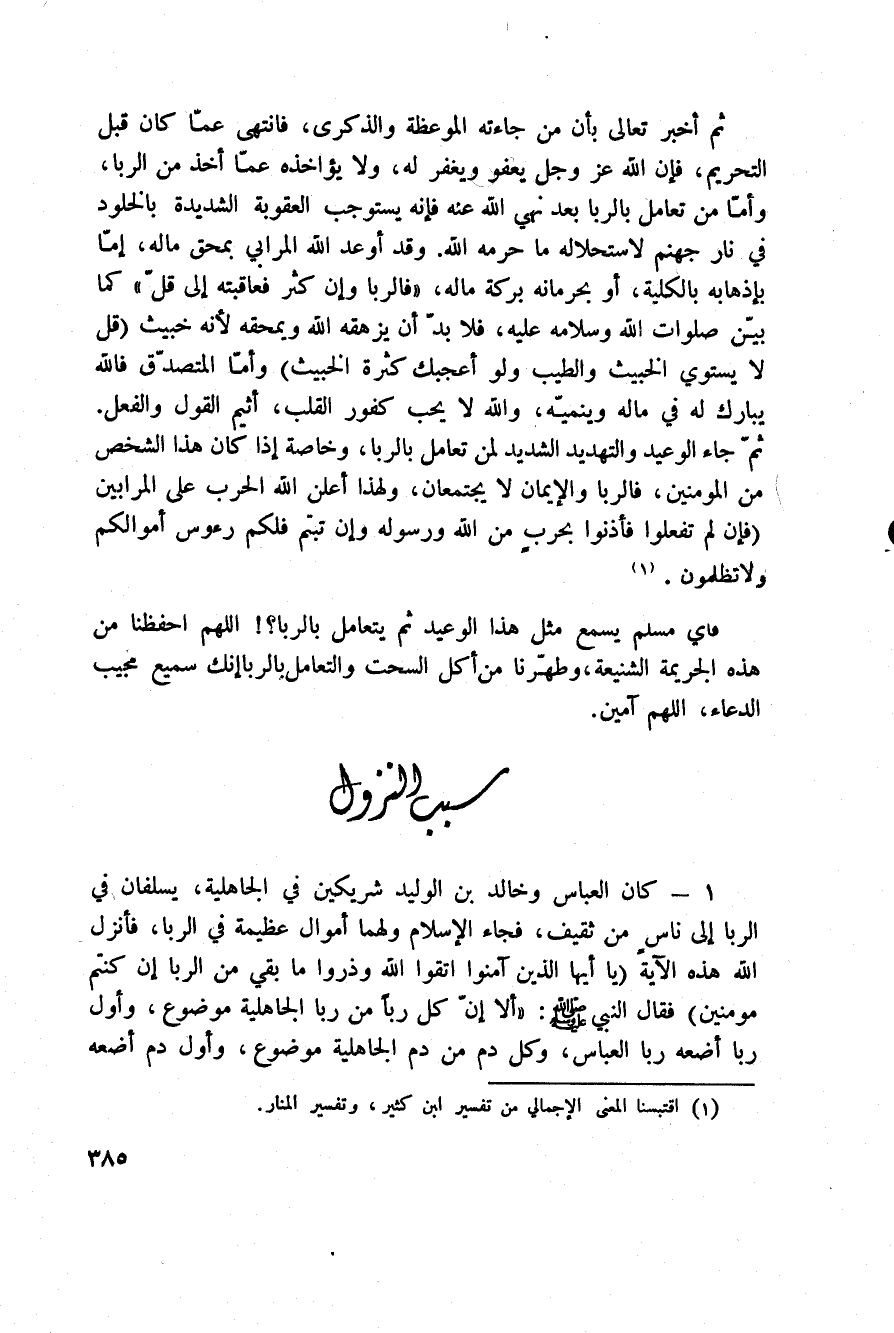 ثم أخبر تعالى بأن من جاءته الموعظة والذكرى، فانتهى عمّا كان قبل
التحريم، فإن الله عز وجل يعفو ويغفر له، ولا يؤاخذه عمّا أخذ من الربا،
وأمّا من تعامل بالربا بعد نهي الله عنه فإنه يستوجب العقوبة الشديدة بالخلود
في نار جهنم لاستحلاله ما حرمه الله. وقد أوعد الله المرابي بمحق ماله، إمّا
بإذهابه بالكلية، أو بحرمانه بركة ماله، «فالربا وإن كثر فعاقبته إلى قلّ» كما
بيّن صلوات الله وسلامه عليه، فلا بدّ أن يزهقه الله ويمحقه لأنه خبيث (قل
لا يستوي الخبيث والطيب ولو أعجبك كثرة الخبيث) وأمّا المتصدّق فالله
يبارك له في ماله وينميّه، والله لا يحب كفور القلب، أثيم القول والفعل.
ثمّ جاء الوعيد والتهديد الشديد لمن تعامل بالربا، وخاصة إذا كان هذا الشخص
من المومنين، فالربا والإيمان لا يجتمعان، ولهذا أعلن الله الحرب على المرابين
(فإن لم تفعلوا فأذنوا بحربٍ من الله ورسوله وإن تبتّم فلكم رءوس أموالكم
ولاتظلمون . (١)
فاي مسلم يسمع مثل هذا الوعيد ثم يتعامل بالربا؟! اللهم احفظنا من
هذه الجريمة الشنيعة،وطهّرنا من أكل السحت والتعامل بالربا إنك سميع مجيب
الدعاء، اللهم آمين.
سبب النزول
١ – كان العباس وخالد بن الوليد شريكين في الجاهلية، يسلفان في
الربا إلى ناسٍ من ثقيف، فجاء الإسلام ولهما أموال عظيمة في الربا، فأنزل
الله هذه الآية (يا أيها الذين آمنوا اتقوا الله وذروا ما بقي من الربا إن كنتم
مومنين) فقال النبي ﷺ : «ألا إنّ كل رباً من ربا الجاهلية موضوع ، وأول
ربا أضعه ربا العباس، وكل دم من دم الجاهلية موضوع ، وأول دم أضعه
(١) اقتبسنا المعنى الإجمالي من تفسير ابن كثير ، وتفسير المنار.
٣٨٥